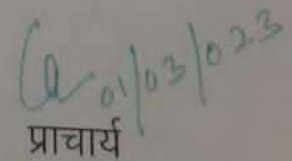 01/03/023
प्राचार्य